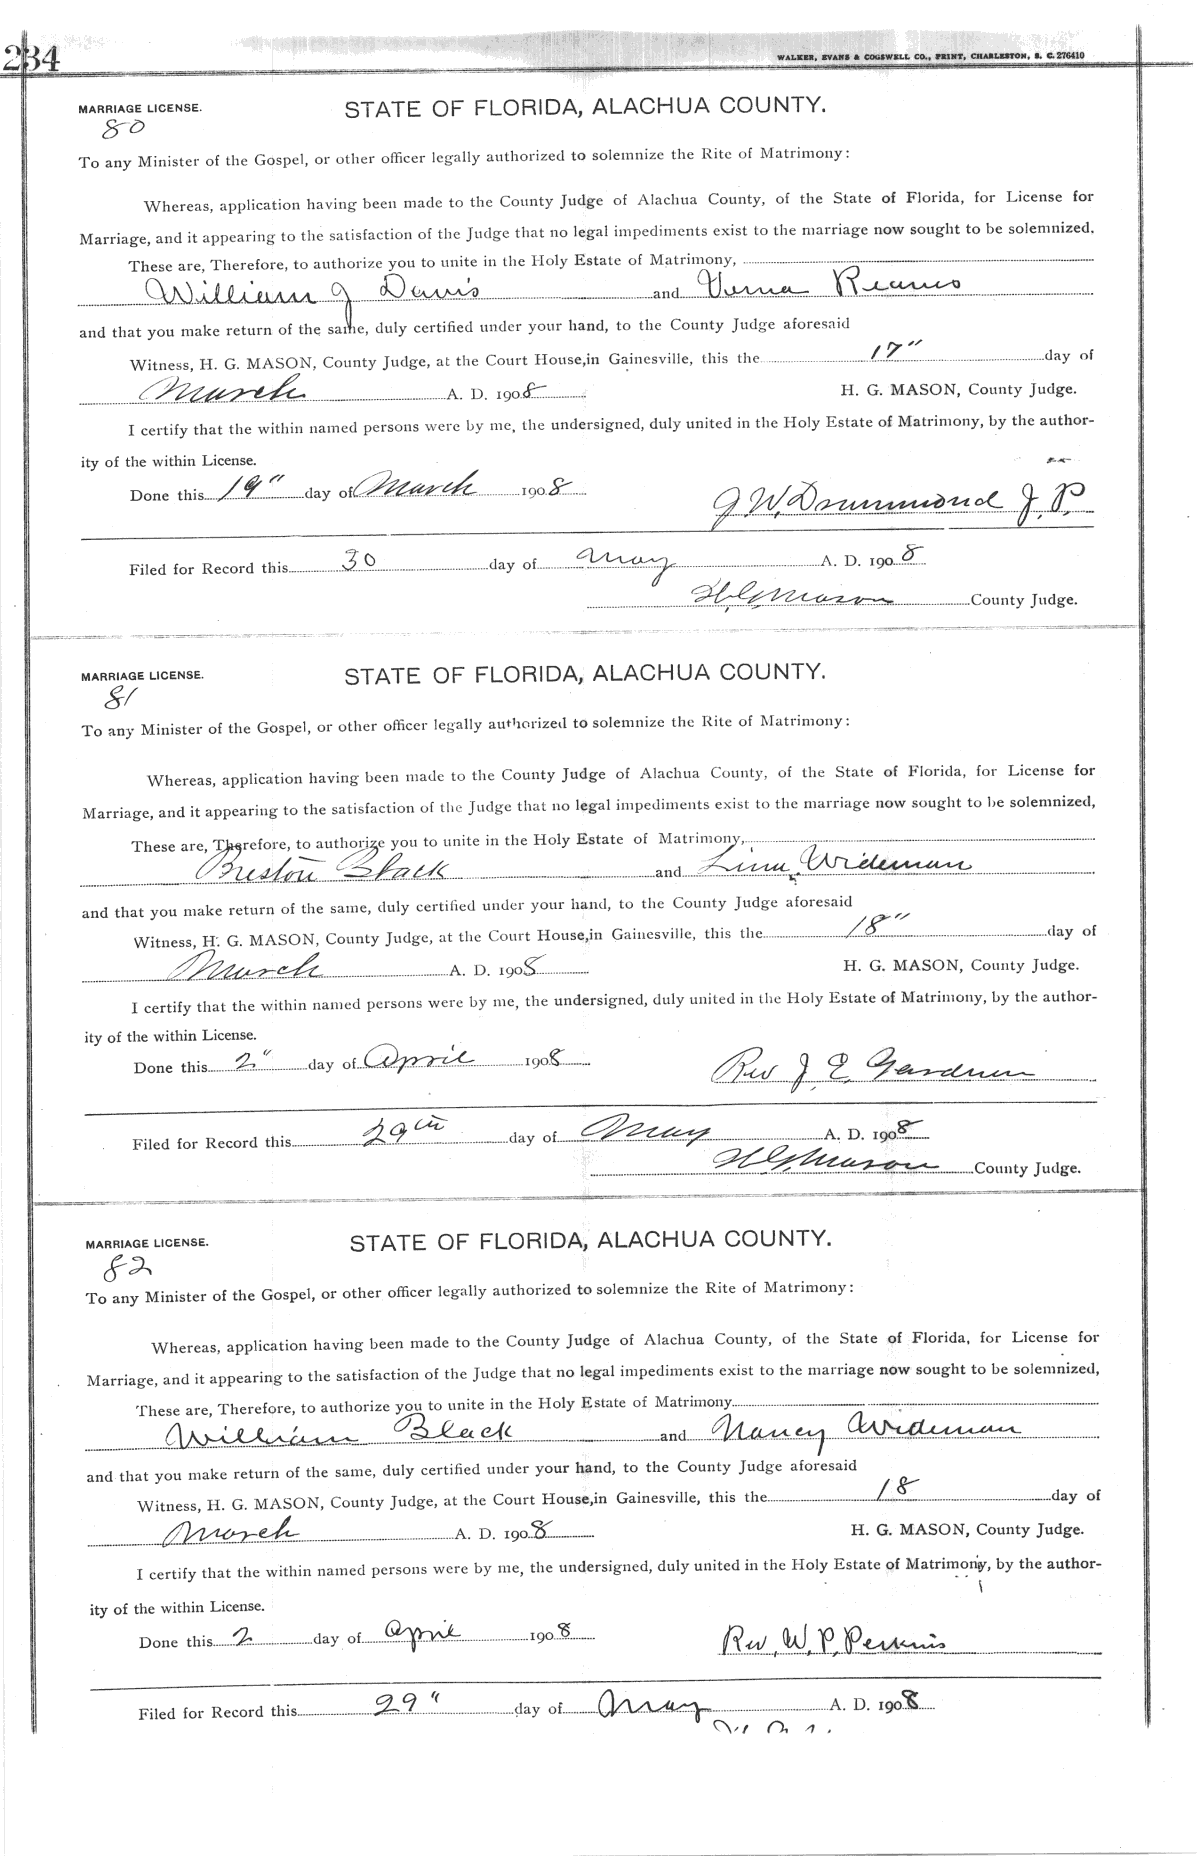 234
WALKER, EVANS & COGSWELL CO., PRINT, CHARLESTON, S. C. 276410
MARRIAGE LICENSE. STATE OF FLORIDA, ALACHUA COUNTY.
80
To any Minister of the Gospel, or other officer legally authorized to solemnize the Rite of Matrimony:
Whereas, application having been made to the County Judge of Alachua County, of the State of Florida, for License for
Marriage, and it appearing to the satisfaction of the Judge that no legal impediments exist to the marriage now sought to be solemnized.
These are, Therefore, to authorize you to unite in the Holy Estate of Matrimony,
William J Davis and Verna Reams
and that you make return of the same, duly certified under your hand, to the County Judge aforesaid
Witness, H. G. MASON, County Judge, at the Court House, in Gainesville, this the 17" day of
March A. D. 1908 H. G. MASON, County Judge.
I certify that the within named persons were by me, the undersigned, duly united in the Holy Estate of Matrimony, by the author-
ity of the within License.
Done this 19" day of March 1908
J. W. Drummond J. P.
Filed for Record this 30 day of May A. D. 1908
H. G. Mason County Judge.
MARRIAGE LICENSE. STATE OF FLORIDA, ALACHUA COUNTY.
81
To any Minister of the Gospel, or other officer legally authorized to solemnize the Rite of Matrimony:
Whereas, application having been made to the County Judge of Alachua County, of the State of Florida, for License for
Marriage, and it appearing to the satisfaction of the Judge that no legal impediments exist to the marriage now sought to be solemnized,
These are, Therefore, to authorize you to unite in the Holy Estate of Matrimony,
Preston Black and Wideman
and that you make return of the same, duly certified under your hand, to the County Judge aforesaid
Witness, H. G. MASON, County Judge, at the Court House, in Gainesville, this the 18" day of
March A. D. 1908 H. G. MASON, County Judge.
I certify that the within named persons were by me, the undersigned, duly united in the Holy Estate of Matrimony, by the author-
ity of the within License.
Done this 2" day of April 1908 Rev J. E. Gardner
Filed for Record this 29th day of May A. D. 1908
H. G. Mason County Judge.
MARRIAGE LICENSE. STATE OF FLORIDA, ALACHUA COUNTY.
82
To any Minister of the Gospel, or other officer legally authorized to solemnize the Rite of Matrimony:
Whereas, application having been made to the County Judge of Alachua County, of the State of Florida, for License for
Marriage, and it appearing to the satisfaction of the Judge that no legal impediments exist to the marriage now sought to be solemnized,
These are, Therefore, to authorize you to unite in the Holy Estate of Matrimony
William Black and Nancy Wideman
and that you make return of the same, duly certified under your hand, to the County Judge aforesaid
Witness, H. G. MASON, County Judge, at the Court House, in Gainesville, this the 18 day of
March A. D. 1908 H. G. MASON, County Judge.
I certify that the within named persons were by me, the undersigned, duly united in the Holy Estate of Matrimony, by the author-
ity of the within License.
Done this 2 day of April 1908 Rev. W. P. Perkins
Filed for Record this 29" day of May A. D. 1908